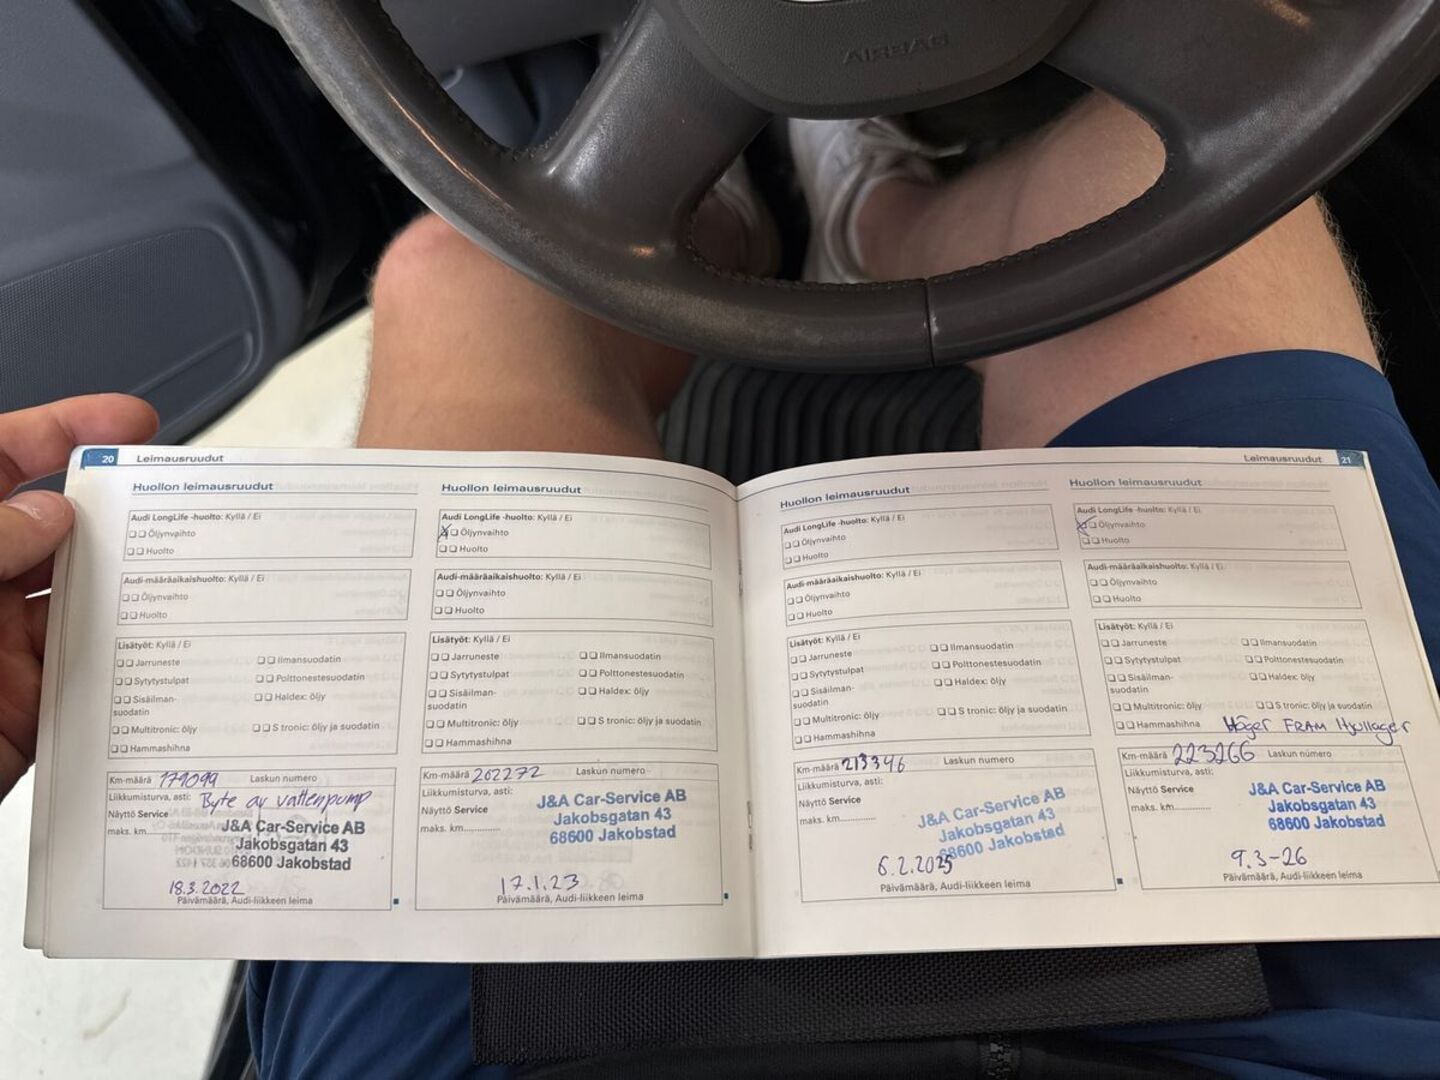 AIRBAG
20 Leimausruudut
Huollon leimausruudut
Audi LongLife -huolto: Kyllä / Ei
Öljynvaihto
Huolto
Audi-määräaikaishuolto: Kyllä / Ei
Öljynvaihto
Huolto
Lisätyöt: Kyllä / Ei
Jarruneste
Ilmansuodatin
Sytytystulpat
Polttonestesuodatin
Sisäilman-
suodatin
Haldex: öljy
Multitronic: öljy
S tronic: öljy ja suodatin
Hammashihna
Km-määrä 179099 Laskun numero
Liikkumisturva, asti: Byte av vattenpump
Näyttö Service
maks. km.............
J&A Car-Service AB
Jakobsgatan 43
68600 Jakobstad
18.3.2022
Päivämäärä, Audi-liikkeen leima
Huollon leimausruudut
Audi LongLife -huolto: Kyllä / Ei
Öljynvaihto
Huolto
Audi-määräaikaishuolto: Kyllä / Ei
Öljynvaihto
Huolto
Lisätyöt: Kyllä / Ei
Jarruneste
Ilmansuodatin
Sytytystulpat
Polttonestesuodatin
Sisäilman-
suodatin
Haldex: öljy
Multitronic: öljy
S tronic: öljy ja suodatin
Hammashihna
Km-määrä 202272 Laskun numero
Liikkumisturva, asti:
Näyttö Service
maks. km.............
J&A Car-Service AB
Jakobsgatan 43
68600 Jakobstad
17.1.23
Päivämäärä, Audi-liikkeen leima
Leimausruudut 21
Huollon leimausruudut
Audi LongLife -huolto: Kyllä / Ei
Öljynvaihto
Huolto
Audi-määräaikaishuolto: Kyllä / Ei
Öljynvaihto
Huolto
Lisätyöt: Kyllä / Ei
Jarruneste
Ilmansuodatin
Sytytystulpat
Polttonestesuodatin
Sisäilman-
suodatin
Haldex: öljy
Multitronic: öljy
S tronic: öljy ja suodatin
Hammashihna
Km-määrä 213346 Laskun numero
Liikkumisturva, asti:
Näyttö Service
maks. km.............
J&A Car-Service AB
Jakobsgatan 43
68600 Jakobstad
6.2.2025
Päivämäärä, Audi-liikkeen leima
Huollon leimausruudut
Audi LongLife -huolto: Kyllä / Ei
Öljynvaihto
Huolto
Audi-määräaikaishuolto: Kyllä / Ei
Öljynvaihto
Huolto
Lisätyöt: Kyllä / Ei
Jarruneste
Ilmansuodatin
Sytytystulpat
Polttonestesuodatin
Sisäilman-
suodatin
Haldex: öljy
Multitronic: öljy
S tronic: öljy ja suodatin
Hammashihna Höger FRAM Hjullager
Km-määrä 223266 Laskun numero
Liikkumisturva, asti:
Näyttö Service
maks. km.............
J&A Car-Service AB
Jakobsgatan 43
68600 Jakobstad
9.3-26
Päivämäärä, Audi-liikkeen leima